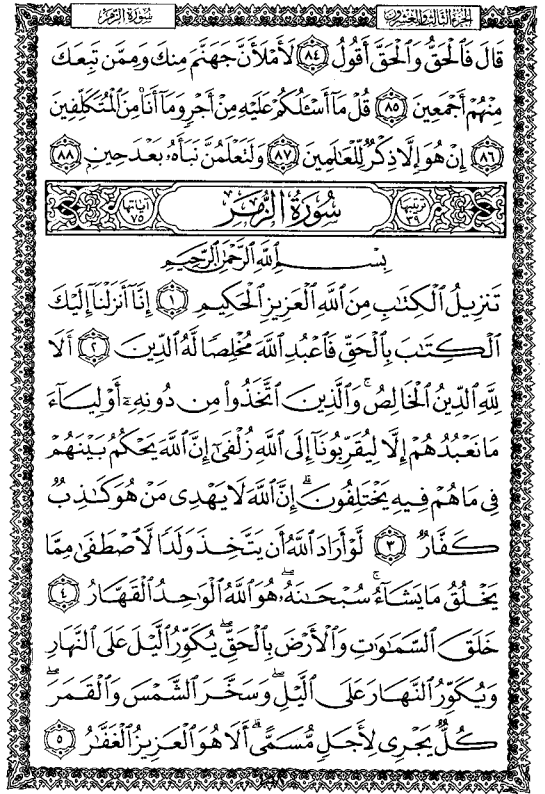 الجزء الثالث والعشرون
سُورَةُ الزُّمَر
قَالَ فَٱلْحَقُّ وَٱلْحَقَّ أَقُولُ ۝٨٤ لَأَمْلَأَنَّ جَهَنَّمَ مِنكَ وَمِمَّن تَبِعَكَ
مِنْهُمْ أَجْمَعِينَ ۝٨٥ قُلْ مَآ أَسْـَٔلُكُمْ عَلَيْهِ مِنْ أَجْرٍ وَمَآ أَنَا۠ مِنَ ٱلْمُتَكَلِّفِينَ
۝٨٦ إِنْ هُوَ إِلَّا ذِكْرٌ لِّلْعَـٰلَمِينَ ۝٨٧ وَلَتَعْلَمُنَّ نَبَأَهُۥ بَعْدَ حِينٍۭ ۝٨٨
ترتيبها ٣٩ سُورَةُ الزُّمَر آياتها ٧٥
بِسْمِ ٱللَّهِ ٱلرَّحْمَـٰنِ ٱلرَّحِيمِ
تَنزِيلُ ٱلْكِتَـٰبِ مِنَ ٱللَّهِ ٱلْعَزِيزِ ٱلْحَكِيمِ ۝١ إِنَّآ أَنزَلْنَآ إِلَيْكَ
ٱلْكِتَـٰبَ بِٱلْحَقِّ فَٱعْبُدِ ٱللَّهَ مُخْلِصًا لَّهُ ٱلدِّينَ ۝٢ أَلَا
لِلَّهِ ٱلدِّينُ ٱلْخَالِصُ ۚ وَٱلَّذِينَ ٱتَّخَذُوا۟ مِن دُونِهِۦٓ أَوْلِيَآءَ
مَا نَعْبُدُهُمْ إِلَّا لِيُقَرِّبُونَآ إِلَى ٱللَّهِ زُلْفَىٰٓ إِنَّ ٱللَّهَ يَحْكُمُ بَيْنَهُمْ
فِى مَا هُمْ فِيهِ يَخْتَلِفُونَ ۗ إِنَّ ٱللَّهَ لَا يَهْدِى مَنْ هُوَ كَـٰذِبٌ
كَفَّارٌ ۝٣ لَّوْ أَرَادَ ٱللَّهُ أَن يَتَّخِذَ وَلَدًا لَّٱصْطَفَىٰ مِمَّا
يَخْلُقُ مَا يَشَآءُ ۚ سُبْحَـٰنَهُۥ ۖ هُوَ ٱللَّهُ ٱلْوَٰحِدُ ٱلْقَهَّارُ ۝٤
خَلَقَ ٱلسَّمَـٰوَٰتِ وَٱلْأَرْضَ بِٱلْحَقِّ ۖ يُكَوِّرُ ٱلَّيْلَ عَلَى ٱلنَّهَارِ
وَيُكَوِّرُ ٱلنَّهَارَ عَلَى ٱلَّيْلِ ۖ وَسَخَّرَ ٱلشَّمْسَ وَٱلْقَمَرَ ۖ
كُلٌّ يَجْرِى لِأَجَلٍ مُّسَمًّى ۗ أَلَا هُوَ ٱلْعَزِيزُ ٱلْغَفَّـٰرُ ۝٥